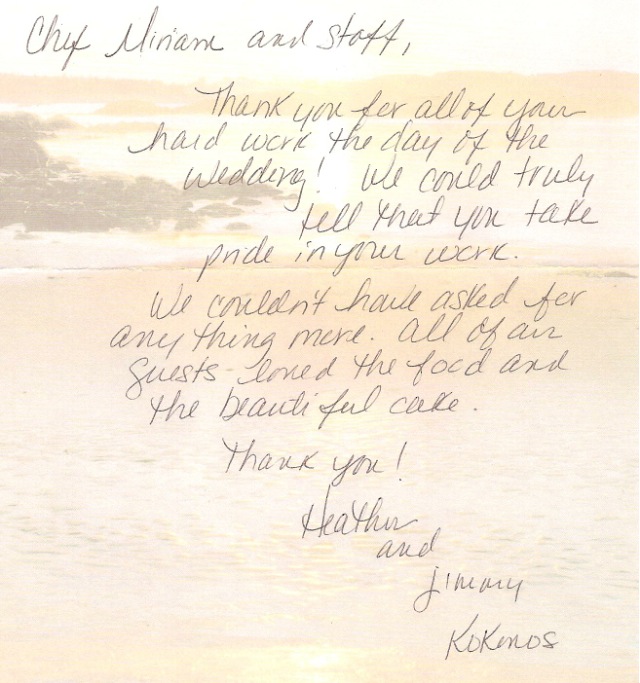 Chef Miriam and staff,
Thank you for all of your
hard work the day of the
wedding! We could truly
tell that you take
pride in your work.
We couldn't have asked for
any thing more. All of our
guests loved the food and
the beautiful cake.
Thank you!
Heather
and
Jimmy
Kokenos